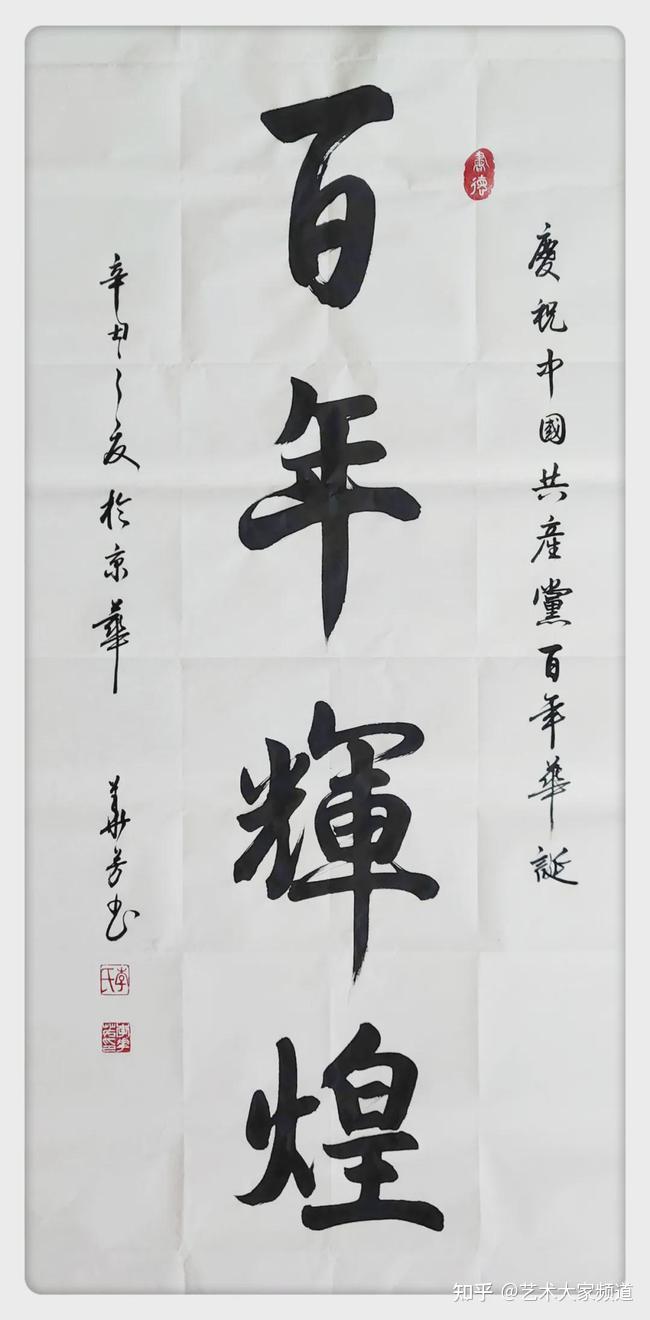 慶祝中國共產黨百年華誕
百年輝煌
辛丑之夏於京華 華芳书
李氏
知乎 @艺术大家频道